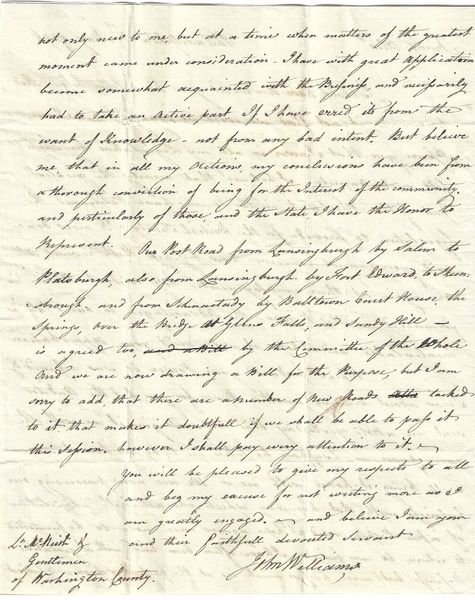 not only new to me, but at a time when matters of the greatest
moment came under consideration - I have with great application
become somewhat acquainted with the Business, and necessarily
had to take an active part If I have erred its from the
want of Knowledge - not from any bad intent. But believe
me, that in all my actions, my conclusions have been from
a thorough conviction of being for the Interest of the community.
and particularly of those and the State I have the Honor to
Represent. Our Post Road from Lansingburgh by Salem to
Platsburgh, also from Lansingburgh by Fort Edward, to
and from by Balltown Court House, the
Springs, over the Bridge at Glens Falls, and Sandy Hill -
is agreed too, and a Bill by the Committee of the Whole
And we are now drawing a Bill for the Purpose, but I am
sorry to add that there are a Number of New Roads tacked
to it that makes it doubtfull if we shall be able to pass it
this Session. however I shall pay every attention to it. -
You will be pleased to give my respects to all
and beg my excuse for not writing more as I
am greatly engaged. - and believe I am your
and their faithfull devouted Servant
John Williams
&
Gentlemen
of Washington County.